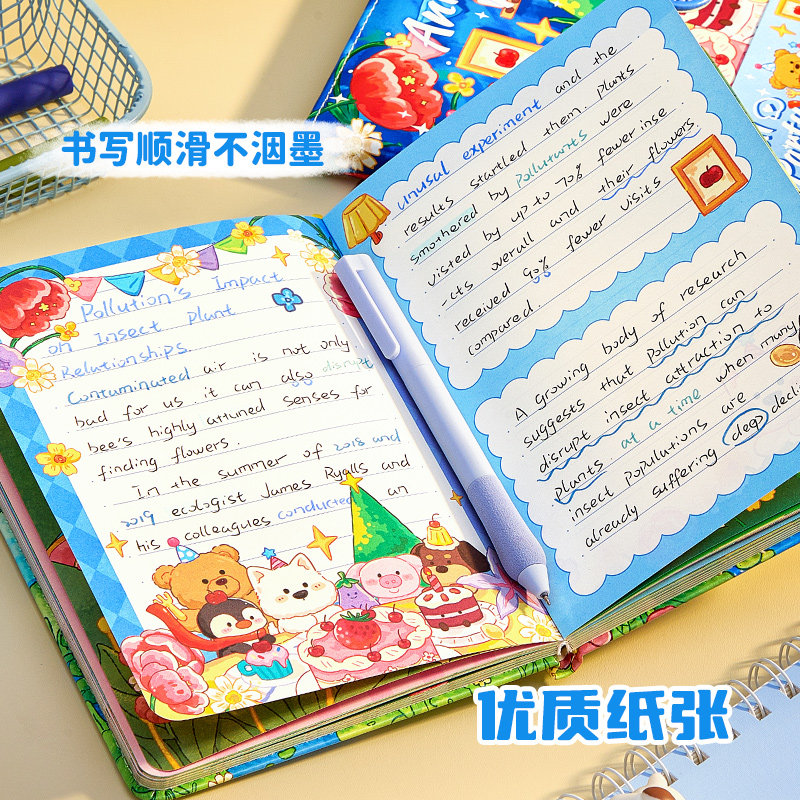 书写顺滑不洇墨
Pollution's Impact
on Insect Plant
Relationships
Contaminated air is not only
bad for us it can also disrupt
bee's highly attuned senses for
finding flowers.
In the summer of 2018 and
2019 ecologist James Ryalls and
his colleagues conducted an
unusual experiment and the
results startled them. Plants
smothered by Pollutants were
visited by up to 70% fewer inse
-cts overall and their flowers
received 90% fewer visits
compared.
A growing body of research
suggests that Pollution can
disrupt insect attraction to
plants at a time when many
insect populutions are
already suffering deep decli
优质纸张